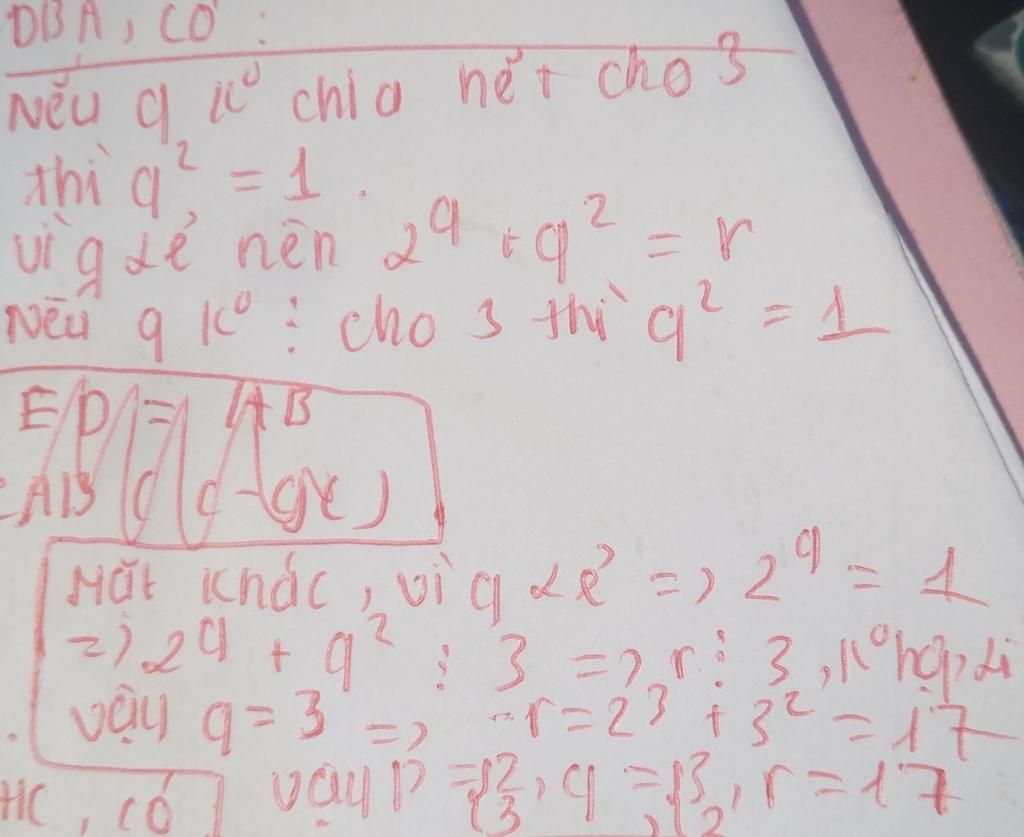 DBA, CÓ :
Nếu q k⁰ chia hết cho 3
thì q² = 1 .
vì q lẻ nên 2^q + q² = r
Nếu q k⁰ ⋮ cho 3 thì q² = 1
E D = A B
Mặt khác, vì q lẻ => 2^q = 1
=> 2^q + q² ⋮ 3 => r ⋮ 3, k⁰ hợp lí
vậy q = 3 => r = 2³ + 3² = 17
HC, CÓ
vậy p = {2 3, q = {3 2, r = 17